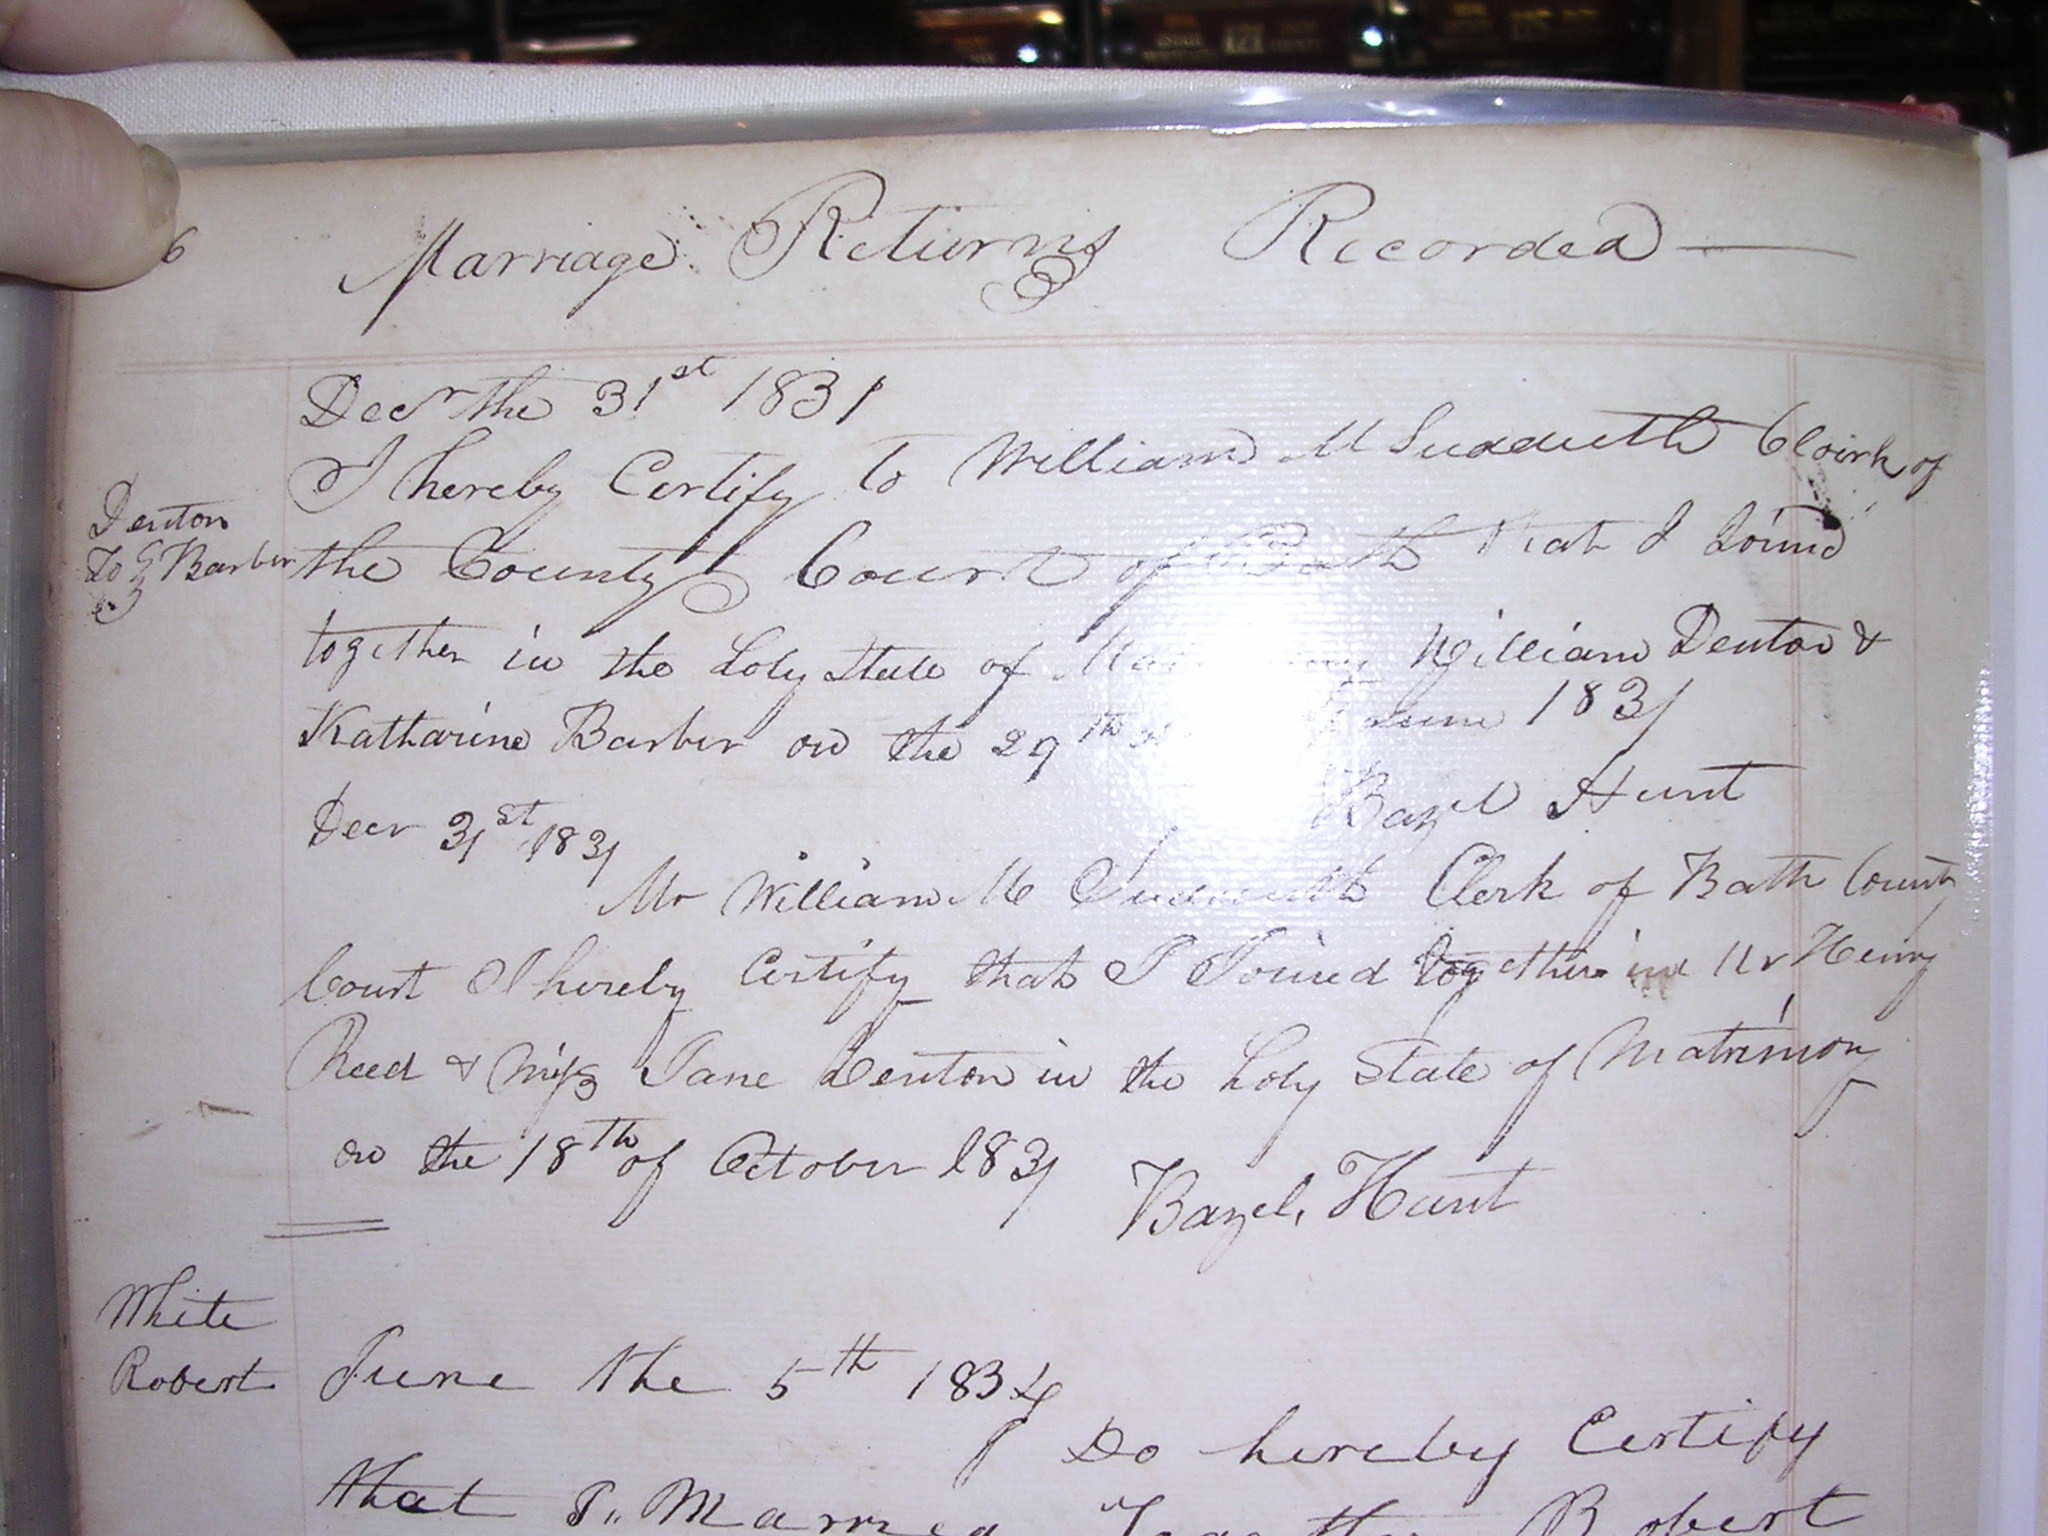 6 Marriage Returns Recorded
Decr the 31st 1831
I hereby Certify to William M Sudduth Cloirk of
Denton
To Barber
the County Court of Bath that I Joined
together in the holy State of William Denton &
Katharine Barber on the 29th June 1831
Bazel Hunt
Decr 31st 1831
Mr William M Sudduth Clerk of Bath County
Court I hereby Certify that I Joined together in Mr Henry
Reed & Miss Jane Denton in the holy State of Matrimony
on the 18th of October 1831
Bazel Hunt
White
Robert
June the 5th 1834
I Do hereby Certify
that I Married Together Robert